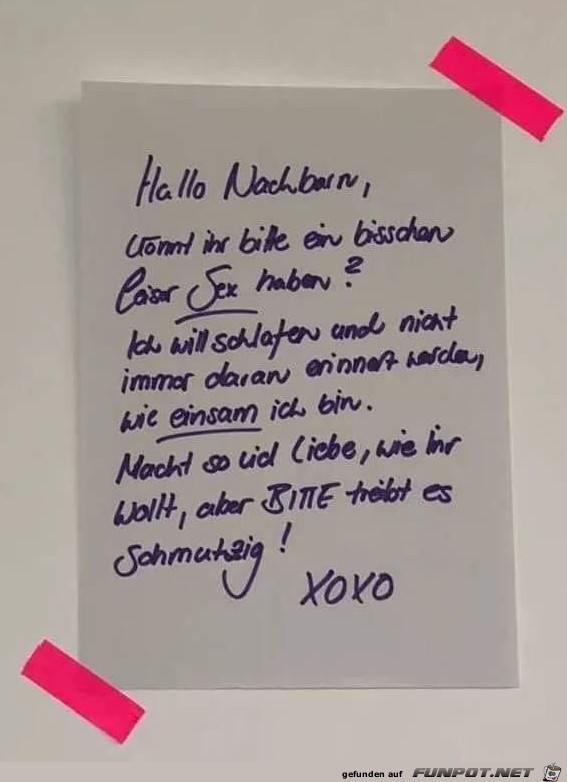 Hallo Nachbarn,
könnt ihr bitte ein bisschen
leiser Sex haben?
Ich will schlafen und nicht
immer daran erinnert werden,
wie einsam ich bin.
Macht so viel Liebe, wie ihr
wollt, aber BITTE treibt es
schmutzig!
XOXO
gefunden auf FUNPOT.NET